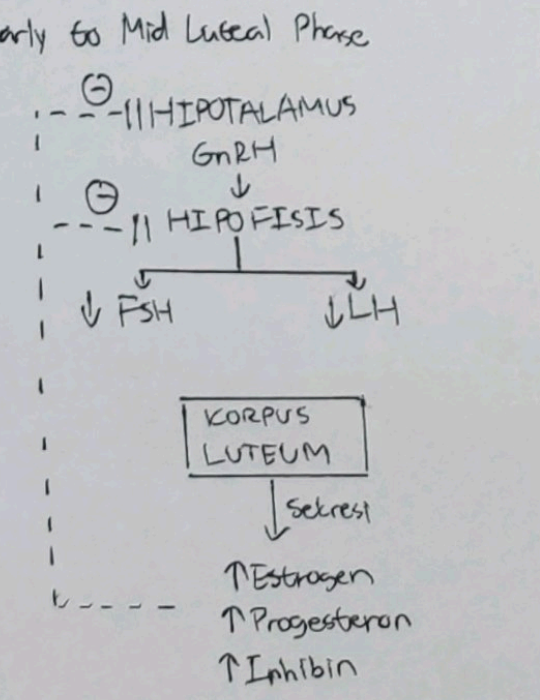 arly to Mid Luteal Phase
⊖
HIPOTALAMUS
GnRH
↓
⊖
HIPOFISIS
↓ FSH ↓ LH
KORPUS
LUTEUM
↓ Sekresi
↑ Estrogen
↑ Progesteron
↑ Inhibin